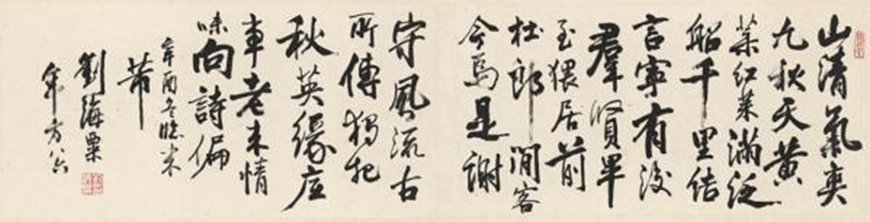 山清氣爽
九秋天黃
菊紅茱滿泛
船千里結
言寧有後
羣賢畢
至猥居前
杜郎閒客
今焉是謝
守風流古
所傳獨把
秋英緣底
事老來情
味向詩偏
辛酉冬臨米
芾
劉海粟
年方八六